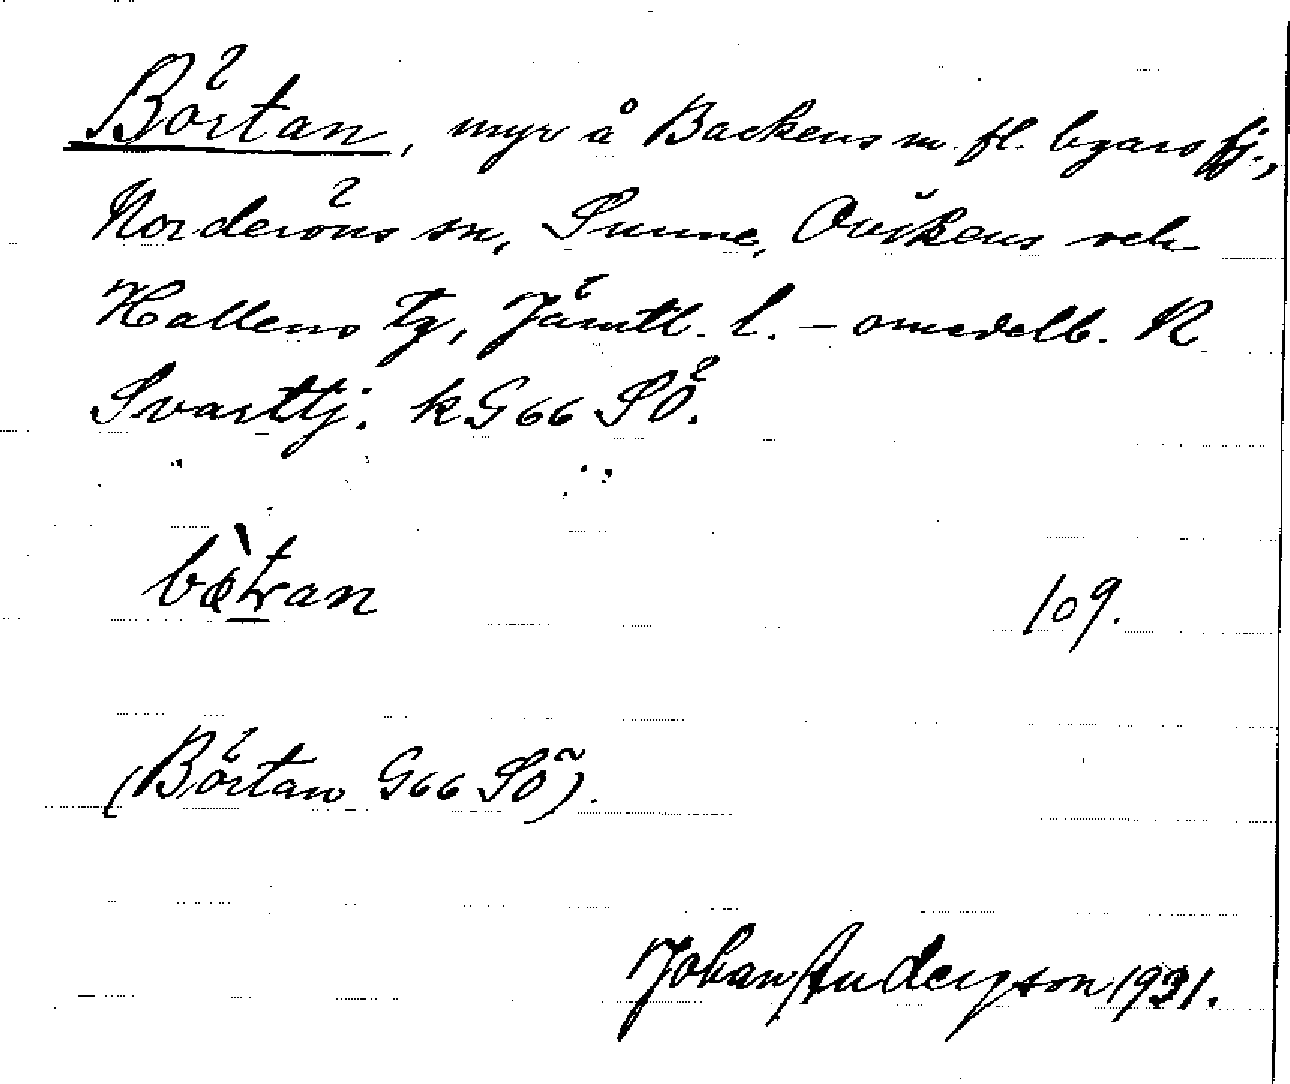 Börtan, myr å Backens m. fl. byars fj.,
Norderöns sn, Sunne, Ovikens och
Hallens tg, Jämtl. l. – omedelb. N
Svarttj. k G66 SÖ.
109.
(Börtan G66 SÖ).
Johan Anderzson 1931.